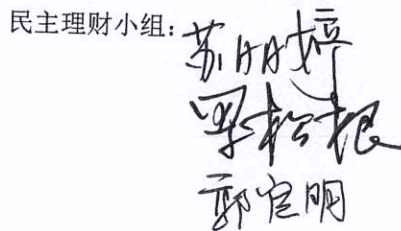 民主理财小组:苏月婷
罗松根
郭宝明